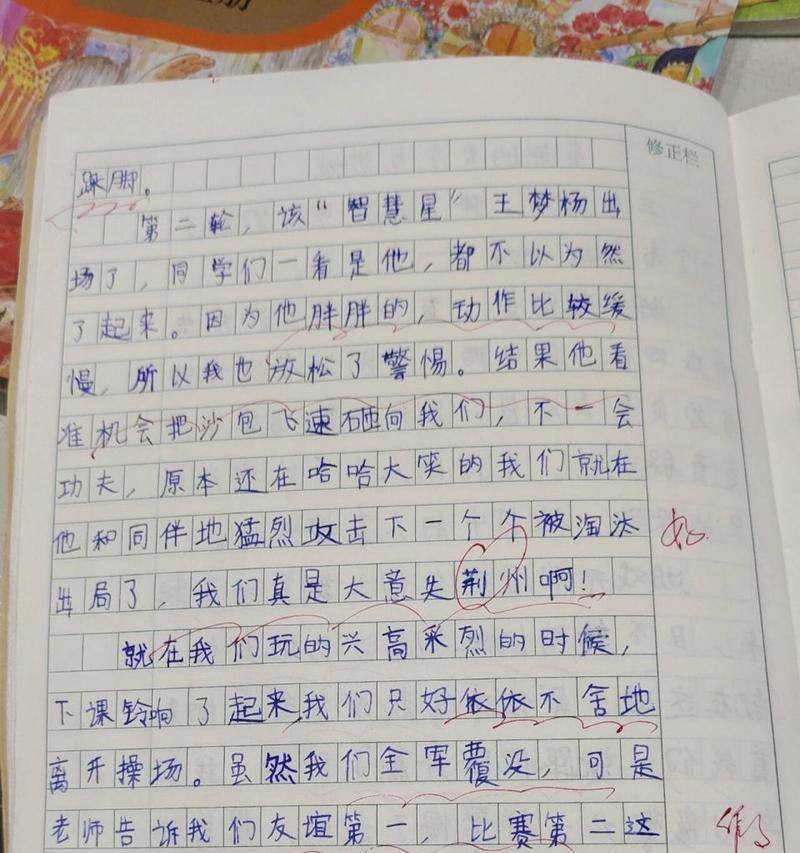 修正栏
跺脚。
第二轮，该“智慧星”王梦杨出
场了，同学们一看是他，都不以为然
了起来。因为他胖胖的，动作比较缓
慢，所以我也放松了警惕。结果他看
准机会把沙包飞速砸向我们，不一会
功夫，原本还在哈哈大笑的我们就在
他和同伴地猛烈攻击下一个个被淘汰
出局了，我们真是大意失荆州啊！
就在我们玩的兴高采烈的时候，
下课铃响了起来我们只好依依不舍地
离开操场。虽然我们全军覆没，可是
老师告诉我们友谊第一，比赛第二这